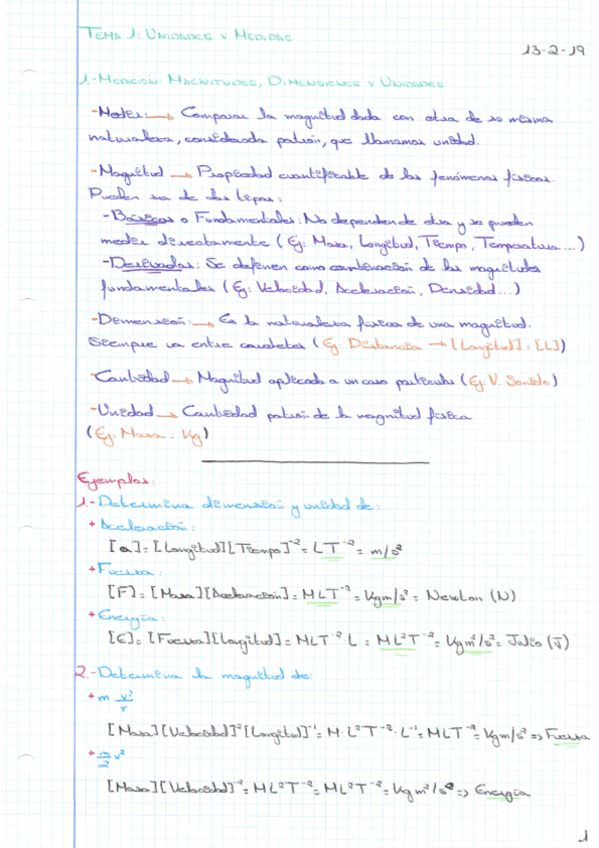 TEMA 1: UNIDADES Y MEDIDAS
13-2-19
1.-MEDICIÓN: MAGNITUDES, DIMENSIONES Y UNIDADES
-Medir: → Comparar la magnitud dada con otra de su misma
naturaleza, considerada patrón, que llamamos unidad.
-Magnitud → Propiedad cuantificable de los fenómenos físicos.
Pueden ser de dos tipos:
-Básicas o Fundamentales: No dependen de otra y se pueden
medir directamente (Ej: Masa, Longitud, Tiempo, Temperatura...)
-Derivadas: Se definen como combinación de las magnitudes
fundamentales (Ej: Velocidad, Aceleración, Densidad...)
-Dimensión: → Es la naturaleza física de una magnitud.
Siempre va entre corchetes (Ej: Distancia → [Longitud]: [L])
-Cantidad → Magnitud aplicada a un caso particular (Ej: V. Sonido)
-Unidad → Cantidad patrón de la magnitud física
(Ej: Masa - Kg)
Ejemplos:
1.-Determina dimensión y unidad de:
+Aceleración:
[a]=[Longitud][Tiempo]⁻²= LT⁻²= m/s²
+Fuerza:
[F]=[Masa][Aceleración]= MLT⁻²= Kgm/s²= Newton (N)
+Energía:
[E]=[Fuerza][Longitud]= MLT⁻²·L= ML²T⁻²= Kgm²/s²= Julio (J)
2.-Determina la magnitud de:
+m v²/r
[Masa][Velocidad]²[Longitud]⁻¹= M·L²T⁻²·L⁻¹= MLT⁻²= Kgm/s² => Fuerza
+m/2 v²
[Masa][Velocidad]⁻²= ML²T⁻²= ML²T⁻²= Kgm²/s² => Energía
1